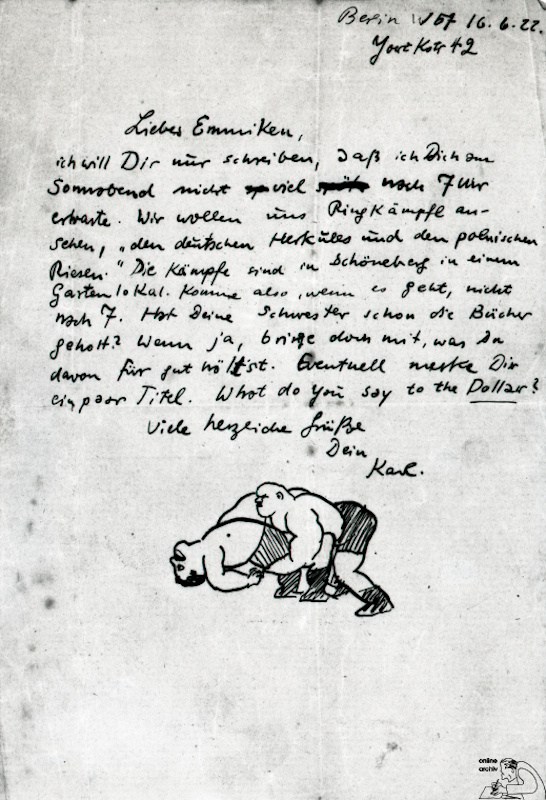 Berlin W 57 16. 6. 22.
Yorckstr 42
Liebes Emmiken,
ich will Dir nur schreiben, daß ich Dich am
Sonnabend nicht viel nach 7 Uhr
erwarte. Wir wollen uns Ringkämpfe an-
sehen, „den deutschen Herkules und den polnischen
Riesen." Die Kämpfe sind in Schöneberg in einem
Gartenlokal. Komme also, wenn es geht, nicht
nach 7. Hat Deine Schwester schon die Bücher
geholt? Wenn ja, bringe doch mit, was Du
davon für gut hältst. Eventuell merke Dir
ein paar Titel. What do you say to the Dollar?
Viele herzliche Grüße
Dein
Karl.
online
archiv